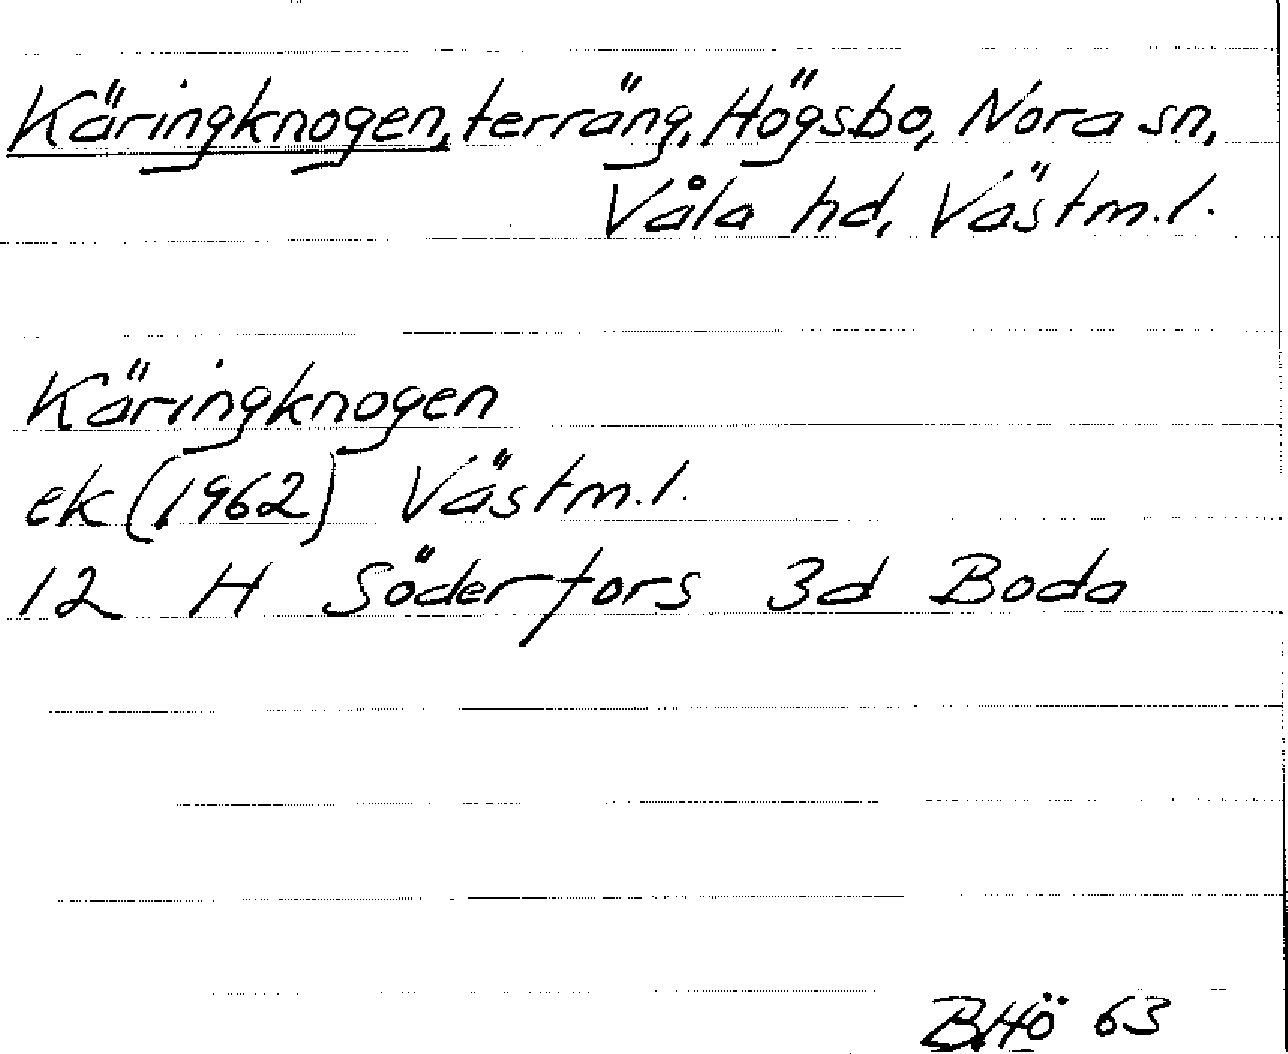 Käringknogen, terräng, Högsbo, Nora sn,
Våla hd, Västm.l.
Käringknogen
ek (1962) Västm.l.
12 H Söderfors 3d Boda
B.Hö 63